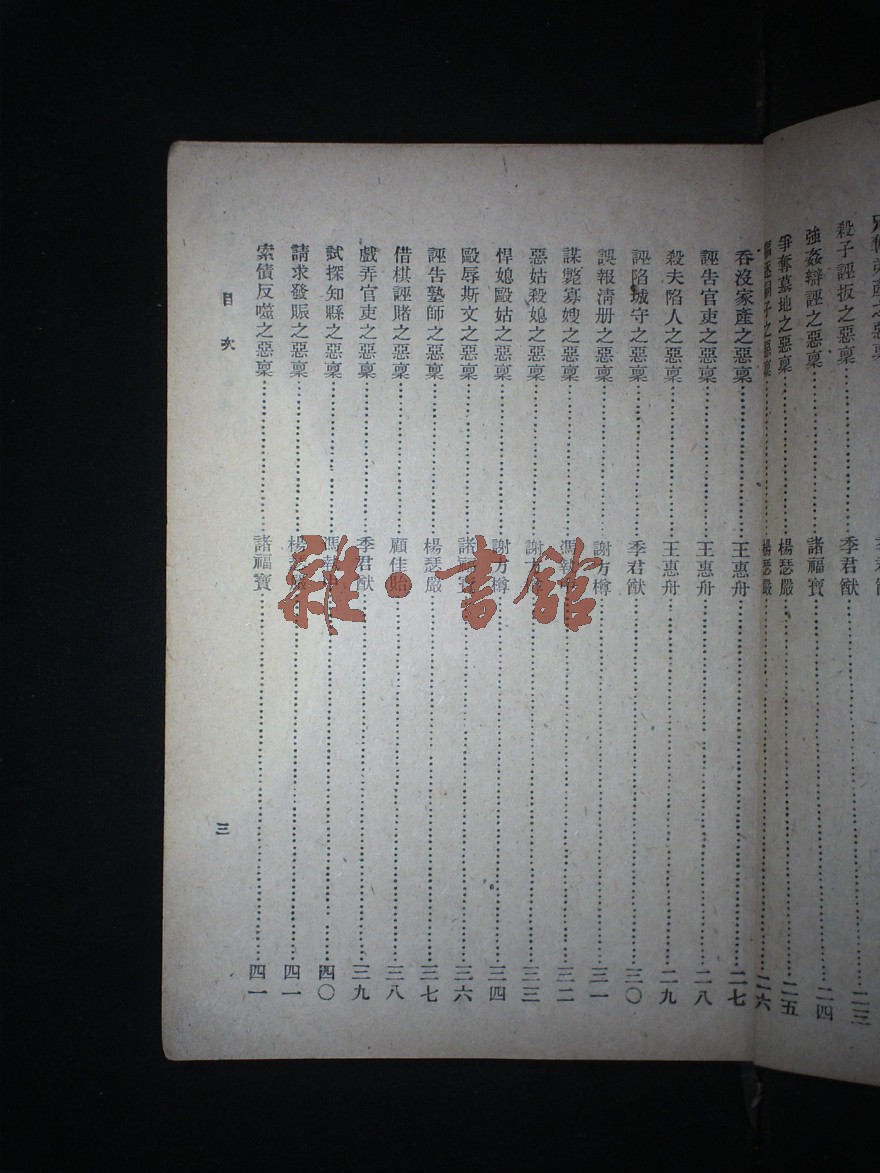 殺子誣扳之惡稟 季君猷 二三
強姦辯誣之惡稟 諸福寶 二四
爭奪墓地之惡稟 楊瑟嚴 二五
嗣子之惡稟 楊瑟嚴 二六
吞沒家產之惡稟 王惠舟 二七
誣告官吏之惡稟 王惠舟 二八
殺夫陷人之惡稟 王惠舟 二九
誣陷城守之惡稟 季君猷 三〇
誤報清册之惡稟 謝方樽 三一
謀斃寡嫂之惡稟 馮執中 三二
惡姑殺媳之惡稟 謝方樽 三三
悍媳毆姑之惡稟 謝方樽 三四
毆辱斯文之惡稟 諸福寶 三六
誣告塾師之惡稟 楊瑟嚴 三七
借棋誣賭之惡稟 顧佳貽 三八
戲弄官吏之惡稟 季君猷 三九
試探知縣之惡稟 馮執中 四〇
請求發賑之惡稟 楊瑟嚴 四一
索債反噬之惡稟 諸福寶 四一
目次 三
雜·書館